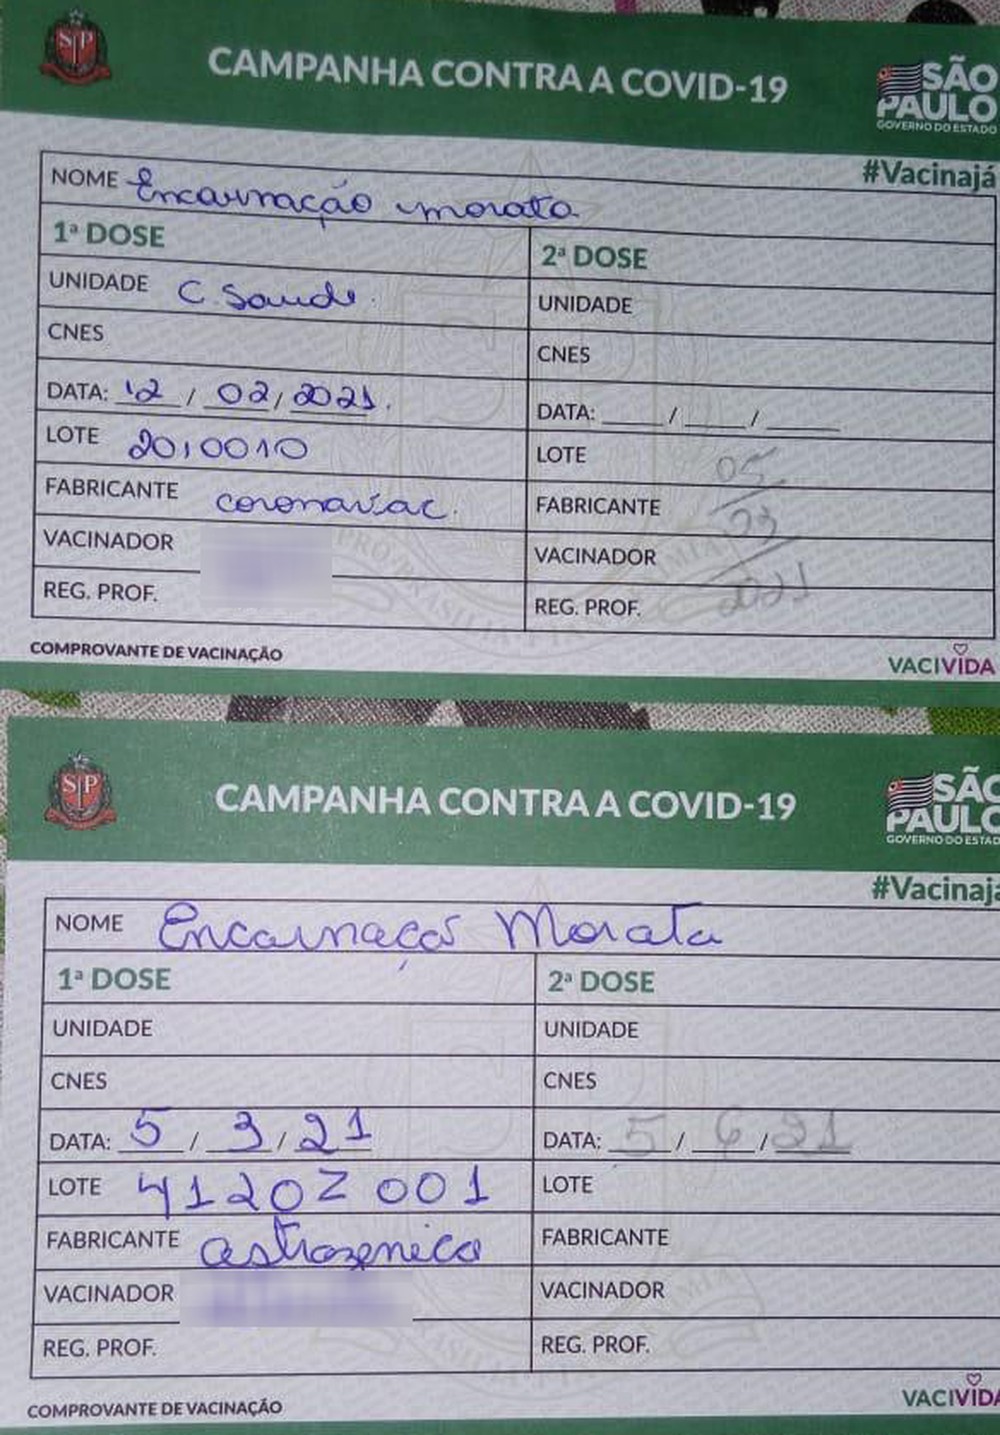 SP
CAMPANHA CONTRA A COVID-19
SÃO PAULO
GOVERNO DO ESTADO
#Vacinajá
NOME Encarnação morata
1ª DOSE
UNIDADE C. Saude.
CNES
DATA: 12 / 02 / 2021.
LOTE 2010010
FABRICANTE coronavac.
VACINADOR
REG. PROF.
2ª DOSE
UNIDADE
CNES
DATA: ___ / ___ / ___
LOTE 05
FABRICANTE 03
VACINADOR
REG. PROF. 2021
COMPROVANTE DE VACINAÇÃO
VACIVIDA
SP
CAMPANHA CONTRA A COVID-19
SÃO PAULO
GOVERNO DO ESTAD
#Vacinajá
NOME Encarnaçaõ Morata
1ª DOSE
UNIDADE
CNES
DATA: 5 / 3 / 21
LOTE 4120Z 001
FABRICANTE astrazenica
VACINADOR
REG. PROF.
2ª DOSE
UNIDADE
CNES
DATA: 5 / 6 / 21
LOTE
FABRICANTE
VACINADOR
REG. PROF.
COMPROVANTE DE VACINAÇÃO
VACIVIDA